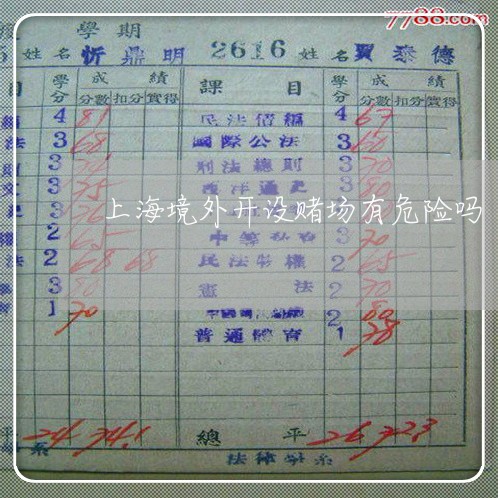 7788.com
學期
姓名 忻鼎明 2616 姓名 賈泰德
目 學分 成績 課目 學分 成績
分數 扣分 實得 分數 扣分 實得
4 81 民法債編 4 67
法 3 68 國際公法 3 60
3 刑法總則 3 70
3 75 西洋通史 3 80
3
上海境外开设赌场有危险吗
2 65 3 70
法 2 68 68 民法物權 2 65
3 80 憲法 2 70
1 70 2 80
普通體育 1 78
平 24 74.1 總平 26 72.3
系 法律學系